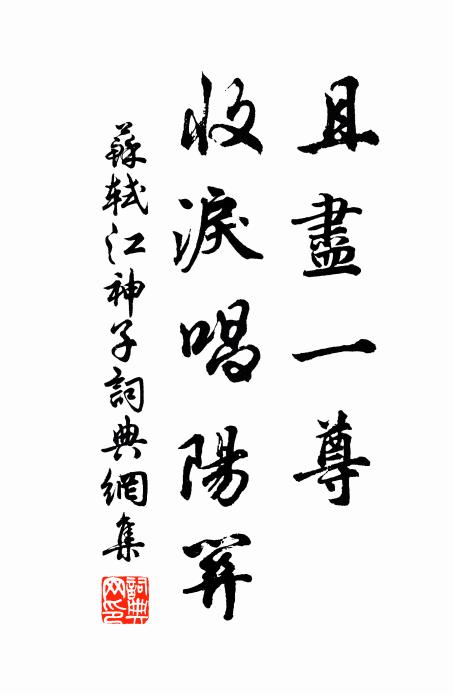 且盡一尊
收淚唱陽關
蘇軾江神子詞典網集
詞典網印